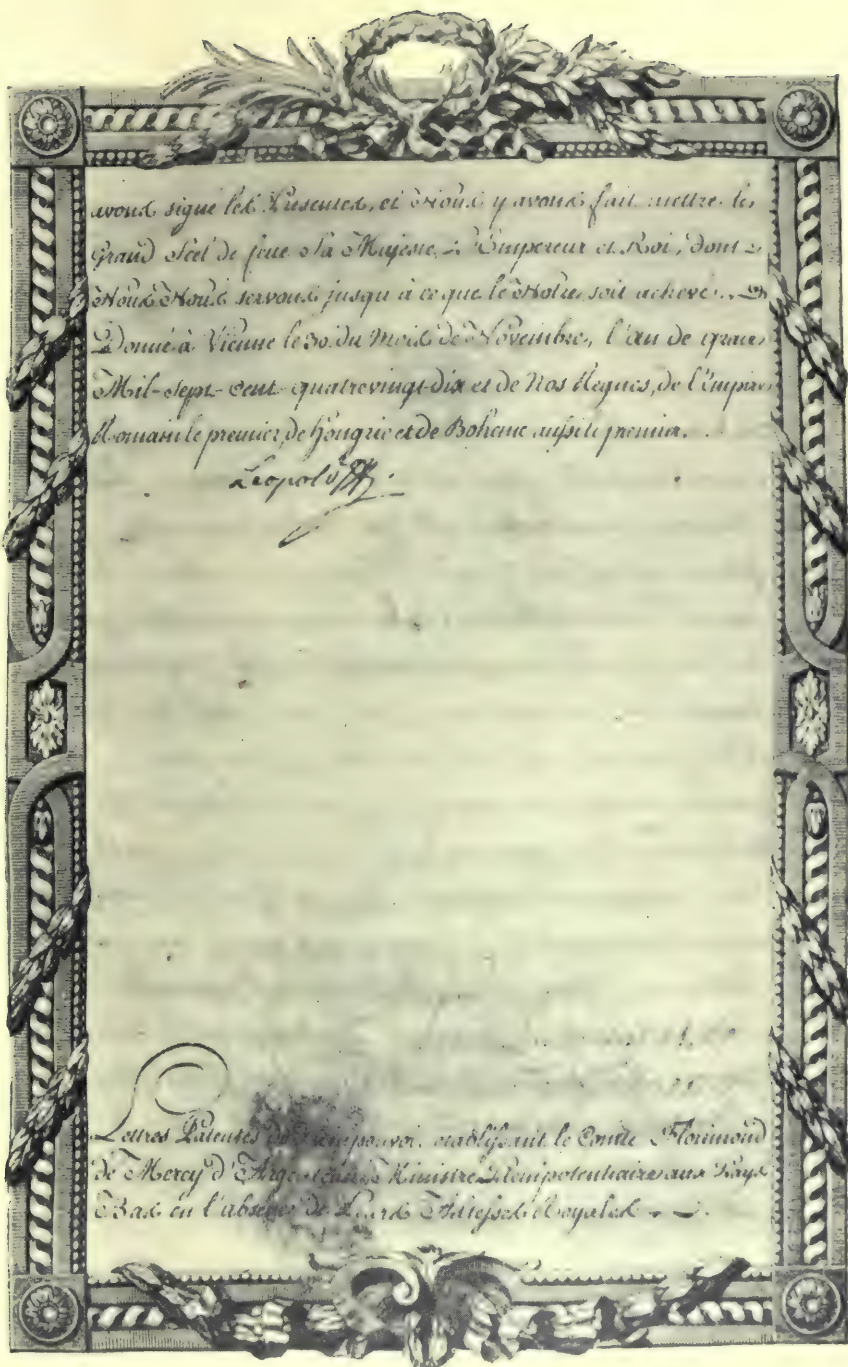 avons signé les Présentes, et Nous y avons fait mettre le
Grand Scel de feue Sa Majesté L'Empereur et Roi, dont
Nous Nous servons jusqu'à ce que le Nôtre soit achevé.
Donné à Vienne le 30. du Mois de Novembre, l'an de grace
Mil-Sept-Cent-quatrevingt-dix et de Nos Regnes, de l'Empire
Romain le premier, de Hongrie et de Boheme aussi le premier.
Leopold
Lettres Patentes de Pleinpouvoir etablissant le Comte Florimond
de Mercy d'Argenteau Ministre Plenipotentiaire aux Pays
Bas en l'absence de Leurs Altesses Royales